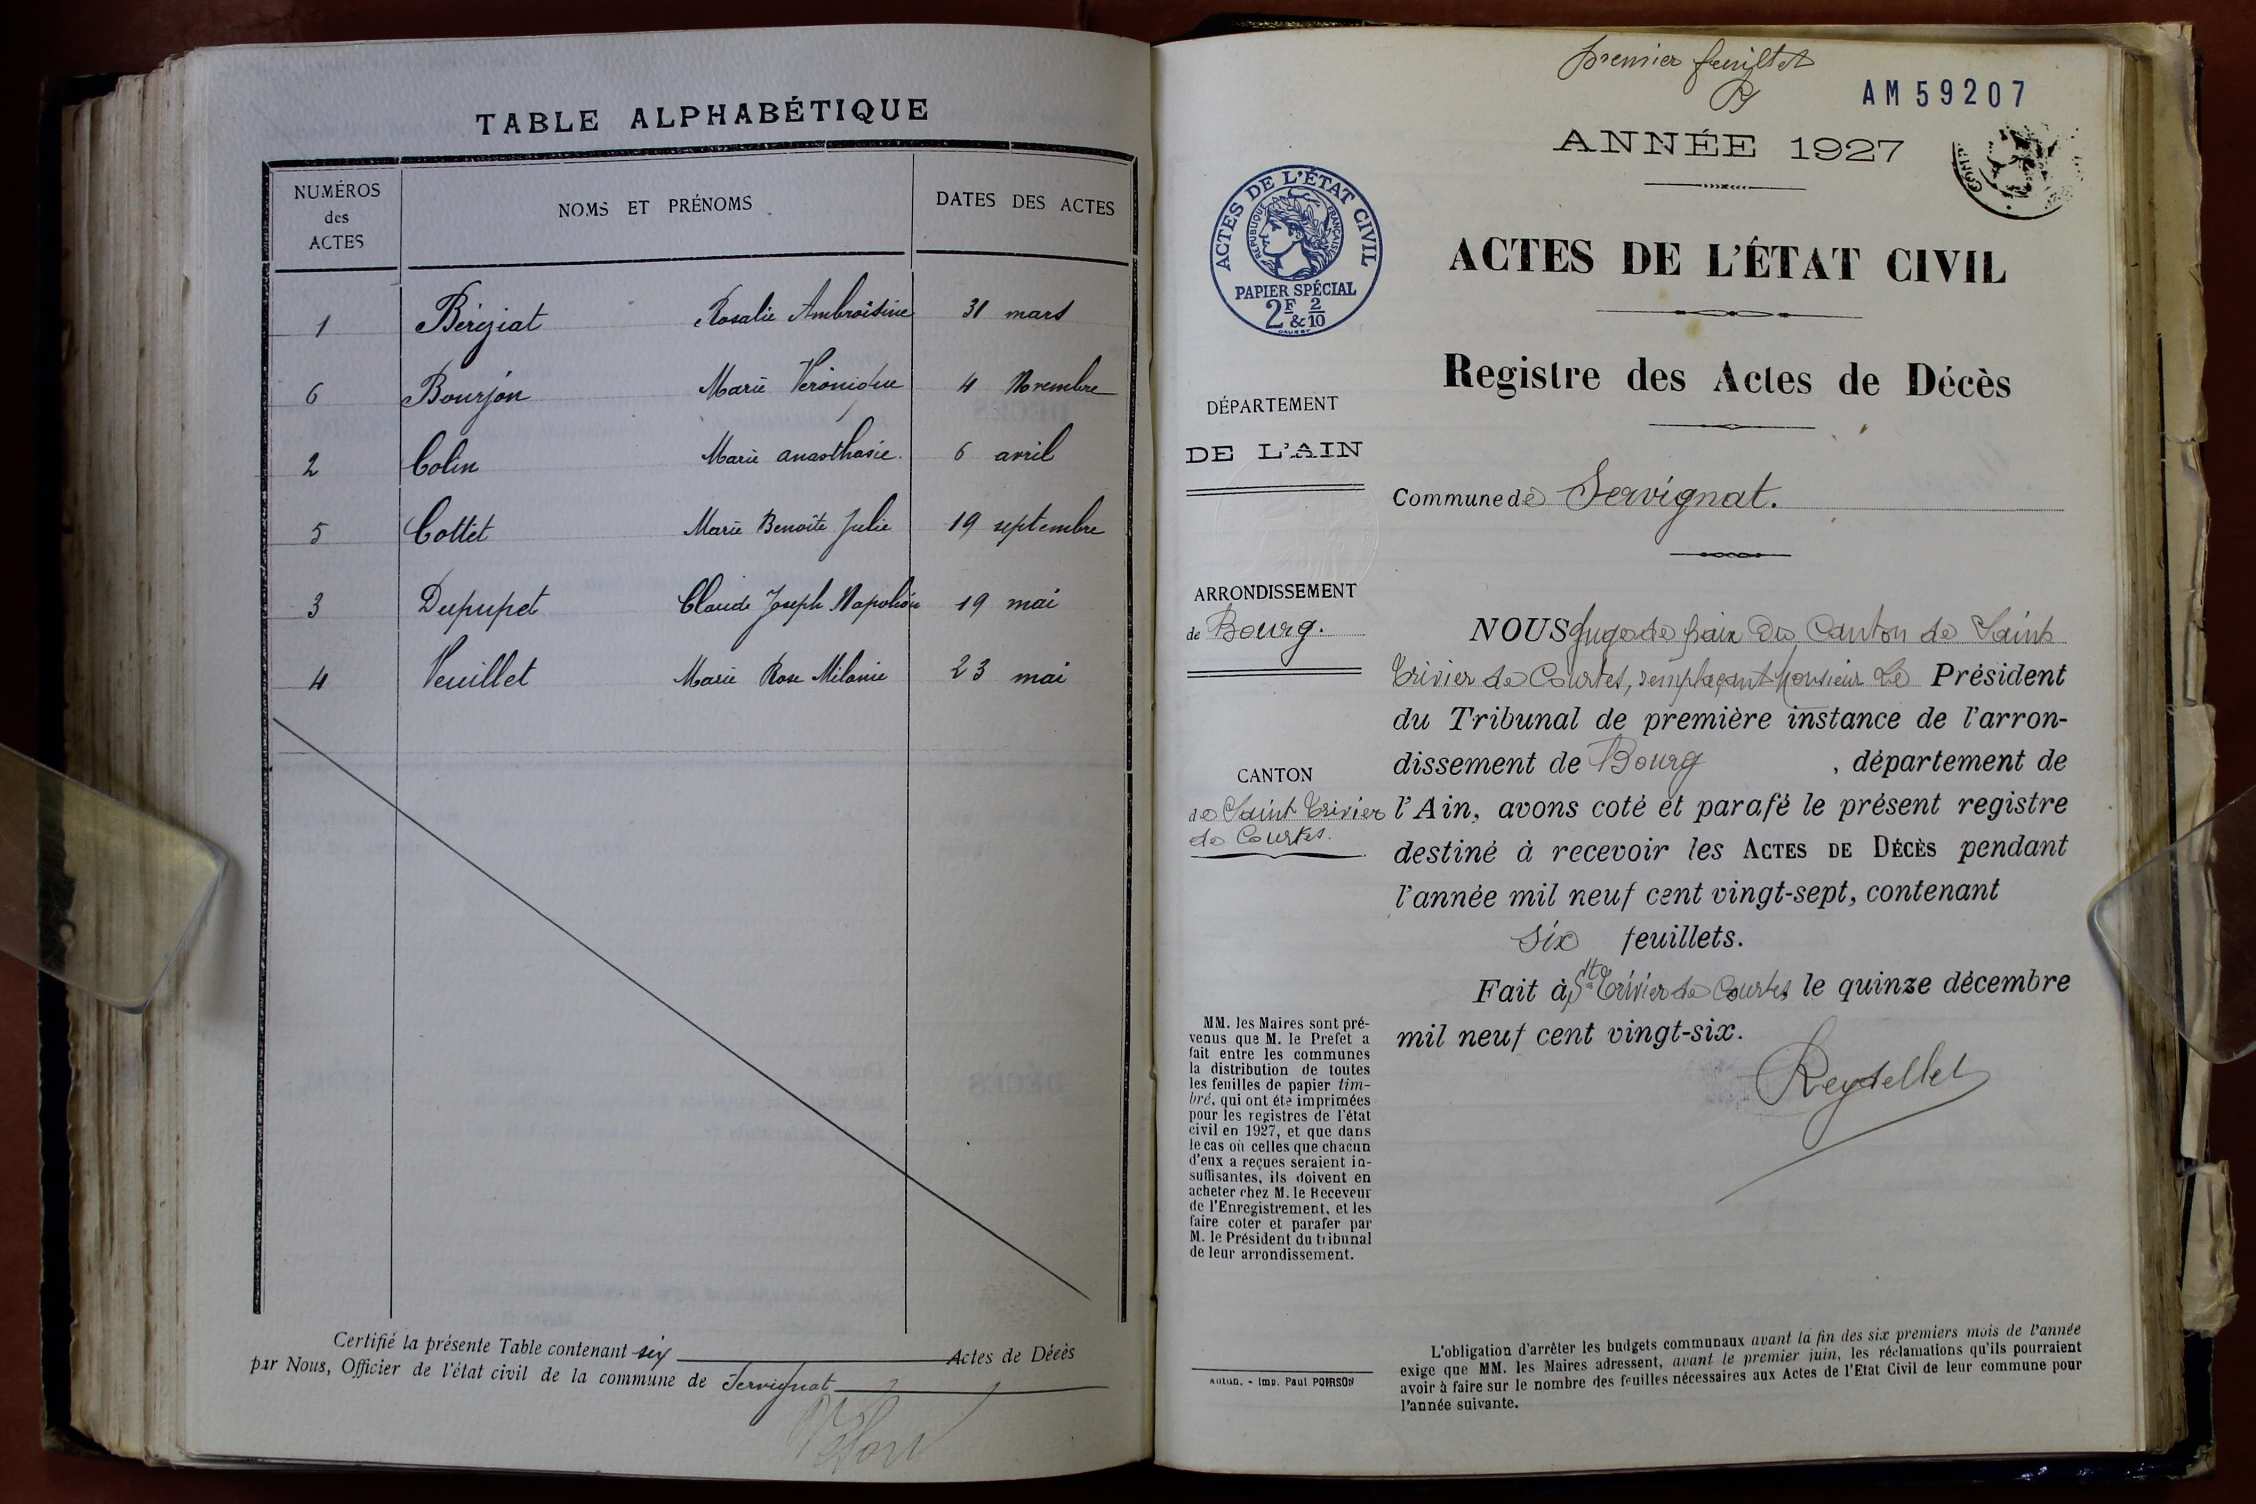 TABLE ALPHABÉTIQUE
NUMÉROS des ACTES
NOMS ET PRÉNOMS
DATES DES ACTES
1 Béréziat Rosalie Ambroisine 31 mars
6 Bourjon Marie Véronique 4 Novembre
2 Colin Marie anasthasie. 6 avril
5 Cottet Marie Benoîte Julie 19 septembre
3 Dupupet Claude Joseph Napoléon 19 mai
4 Veuillet Marie Rose Mélanie 23 mai
Certifié la présente Table contenant six Actes de Décès
par Nous, Officier de l'état civil de la commune de Servignat
premier feuillet
AM59207
ANNÉE 1927
ACTES DE L'ÉTAT CIVIL
RÉPUBLIQUE FRANÇAISE
PAPIER SPÉCIAL
2F & 2/10
ACTES DE L'ÉTAT CIVIL
Registre des Actes de Décès
DÉPARTEMENT
DE L'AIN
Commune de Servignat.
ARRONDISSEMENT
de Bourg.
CANTON
de Saint Trivier
de Courtes.
NOUS Juge de paix du Canton de Saint
Trivier de Courtes, remplaçant Monsieur Le Président
du Tribunal de première instance de l'arron-
dissement de Bourg, département de
l'Ain, avons coté et parafé le présent registre
destiné à recevoir les ACTES DE DÉCÈS pendant
l'année mil neuf cent vingt-sept, contenant
six feuillets.
Fait à St Trivier de Courtes le quinze décembre
mil neuf cent vingt-six.
Reydellet
MM. les Maires sont pré-
venus que M. le Prefet a
fait entre les communes
la distribution de toutes
les feuilles de papier tim-
bré, qui ont été imprimées
pour les registres de l'état
civil en 1927, et que dans
le cas où celles que chacun
d'eux a reçues seraient in-
suffisantes, ils doivent en
acheter chez M. le Receveur
de l'Enregistrement, et les
faire coter et parafer par
M. le Président du tribunal
de leur arrondissement.
Autun. - Imp. Paul POIRSON
L'obligation d'arrêter les budgets communaux avant la fin des six premiers mois de l'année
exige que MM. les Maires adressent, avant le premier juin, les réclamations qu'ils pourraient
avoir à faire sur le nombre des feuilles nécessaires aux Actes de l'Etat Civil de leur commune pour
l'année suivante.